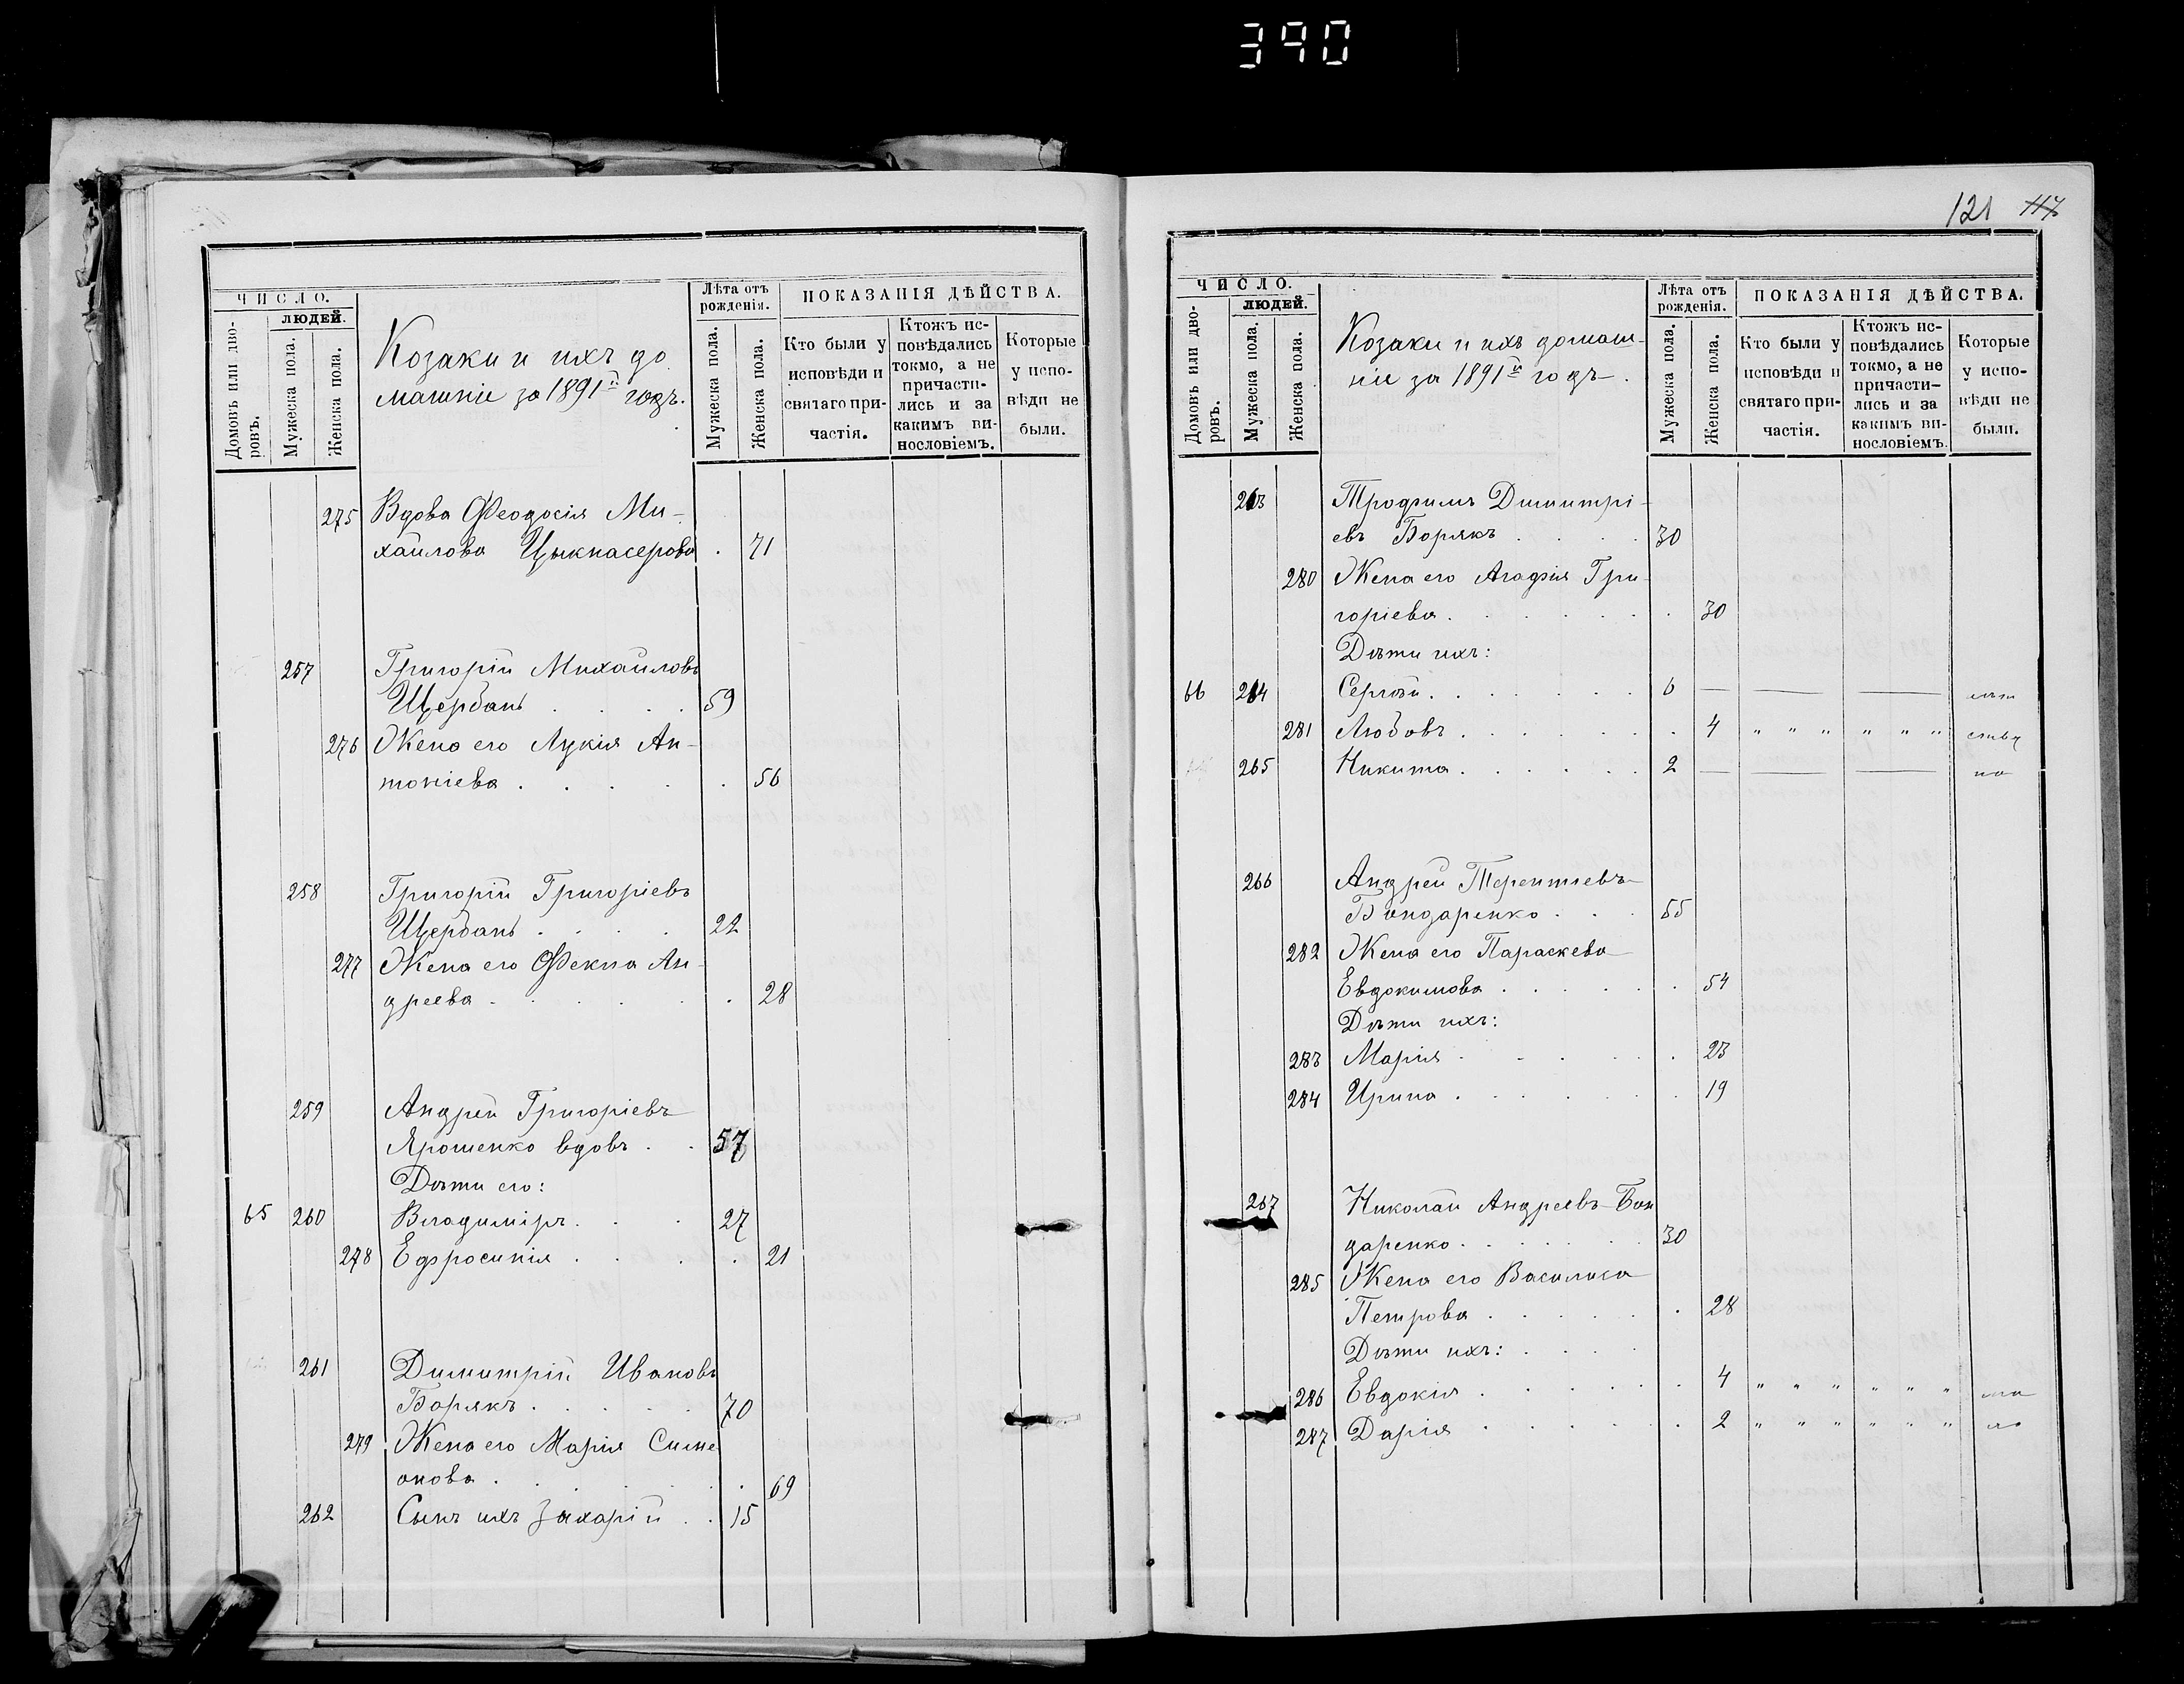 390
ЧИСЛО.
ЛЮДЕЙ.
Домовъ или дворовъ.
Мужеска пола.
Женска пола.
Козаки и ихъ до
машніе за 1891й годъ.
Лѣта отъ
рожденія.
Мужеска пола.
Женска пола.
ПОКАЗАНІЯ ДѢЙСТВА.
Кто были у
исповѣди и
святаго при-
частія.
Ктожъ ис-
повѣдались
токмо, а не
причасти-
лись и за
какимъ ви-
нословіемъ.
Которые
у испо-
вѣди не
были.
275 Вдова Феодосія Ми-
хайлова . 71
257 Григорій Михайловъ
Щербань . . . . 59
276 Жена его Лукія Ан-
тоніева . . . . . . 56
258 Григорій Григоріевъ
Щербань . . . . 22
277 Жена его Фекла Ан-
дреева . . . . . . 28
259 Андрей Григоріевъ
Ярошенко вдовъ . . 57
Дѣти его:
65 260 Владиміръ . . . 27
278 Ефросинія . . . . . 21
261 Димитрій Ивановъ
Борякъ . . . . . 70
279 Жена его Марія Симе
онова . . . . . . 69
262 Сынъ ихъ Захарій . . 15
121 117
ЧИСЛО.
ЛЮДЕЙ.
Домовъ или дворовъ.
Мужеска пола.
Женска пола.
Козаки и ихъ домаш-
ніе за 1891й годъ.
Лѣта отъ
рожденія.
Мужеска пола.
Женска пола.
ПОКАЗАНІЯ ДѢЙСТВА.
Кто были у
исповѣди и
святаго при-
частія.
Ктожъ ис-
повѣдались
токмо, а не
причасти-
лись и за
какимъ ви-
нословіемъ.
Которые
у испо-
вѣди не
были.
263 Трофимъ Димитрі-
евъ Борякъ . . . . 30
280 Жена его Агафія Гри-
горіева . . . . . . . 30
Дѣти ихъ:
66 264 Сергѣй . . . . . . 6 — — —
281 Любовь . . . . . . . 4 " " " " " "
265 Никита . . . . . . 2 — — —
266 Андрей Терентіевъ
Бондаренко . . . 55
282 Жена его Параскева
Евдокимова . . . . . . 54
Дѣти ихъ:
283 Марія . . . . . . 23
284 Ирина . . . . . . . 19
267 Николай Андреевъ Бон
даренко . . . . . . 30
285 Жена его Василиса
Петрова . . . . . . 28
Дѣти ихъ: . . . .
286 Евдокія . . . . . . 4 " " " " " "
287 Дарія . . . . . . 2 " " " " " "